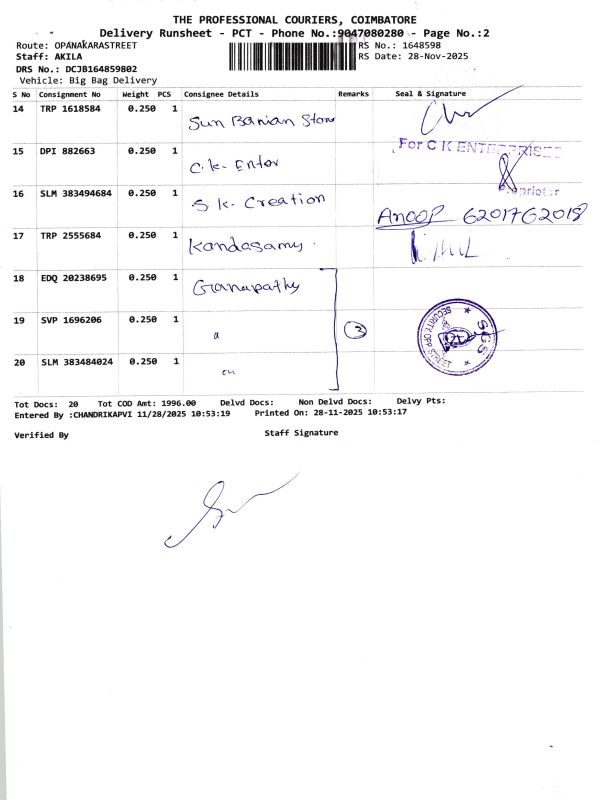 THE PROFESSIONAL COURIERS, COIMBATORE
Delivery Runsheet - PCT - Phone No.:9047080280 - Page No.:2
Route: OPANAKARASTREET RS No.: 1648598
Staff: AKILA RS Date: 28-Nov-2025
DRS No.: DCJB164859802
Vehicle: Big Bag Delivery
S No Consignment No Weight PCS Consignee Details Remarks Seal & Signature
14 TRP 1618584 0.250 1 Sun Banian Store
15 DPI 882663 0.250 1 C.K. Enter For C K ENTERPRISES
Proprietor
16 SLM 383494684 0.250 1 S K. Creation ANOOP 6201762018
17 TRP 2555684 0.250 1 Kandasamy
18 EDQ 20238695 0.250 1 Ganapathy
19 SVP 1696206 0.250 1 a 3 SGS SECURITY OPP. STREET
20 SLM 383484024 0.250 1
Tot Docs: 20 Tot COD Amt: 1996.00 Delvd Docs: Non Delvd Docs: Delvy Pts:
Entered By :CHANDRIKAPVI 11/28/2025 10:53:19 Printed On: 28-11-2025 10:53:17
Verified By Staff Signature